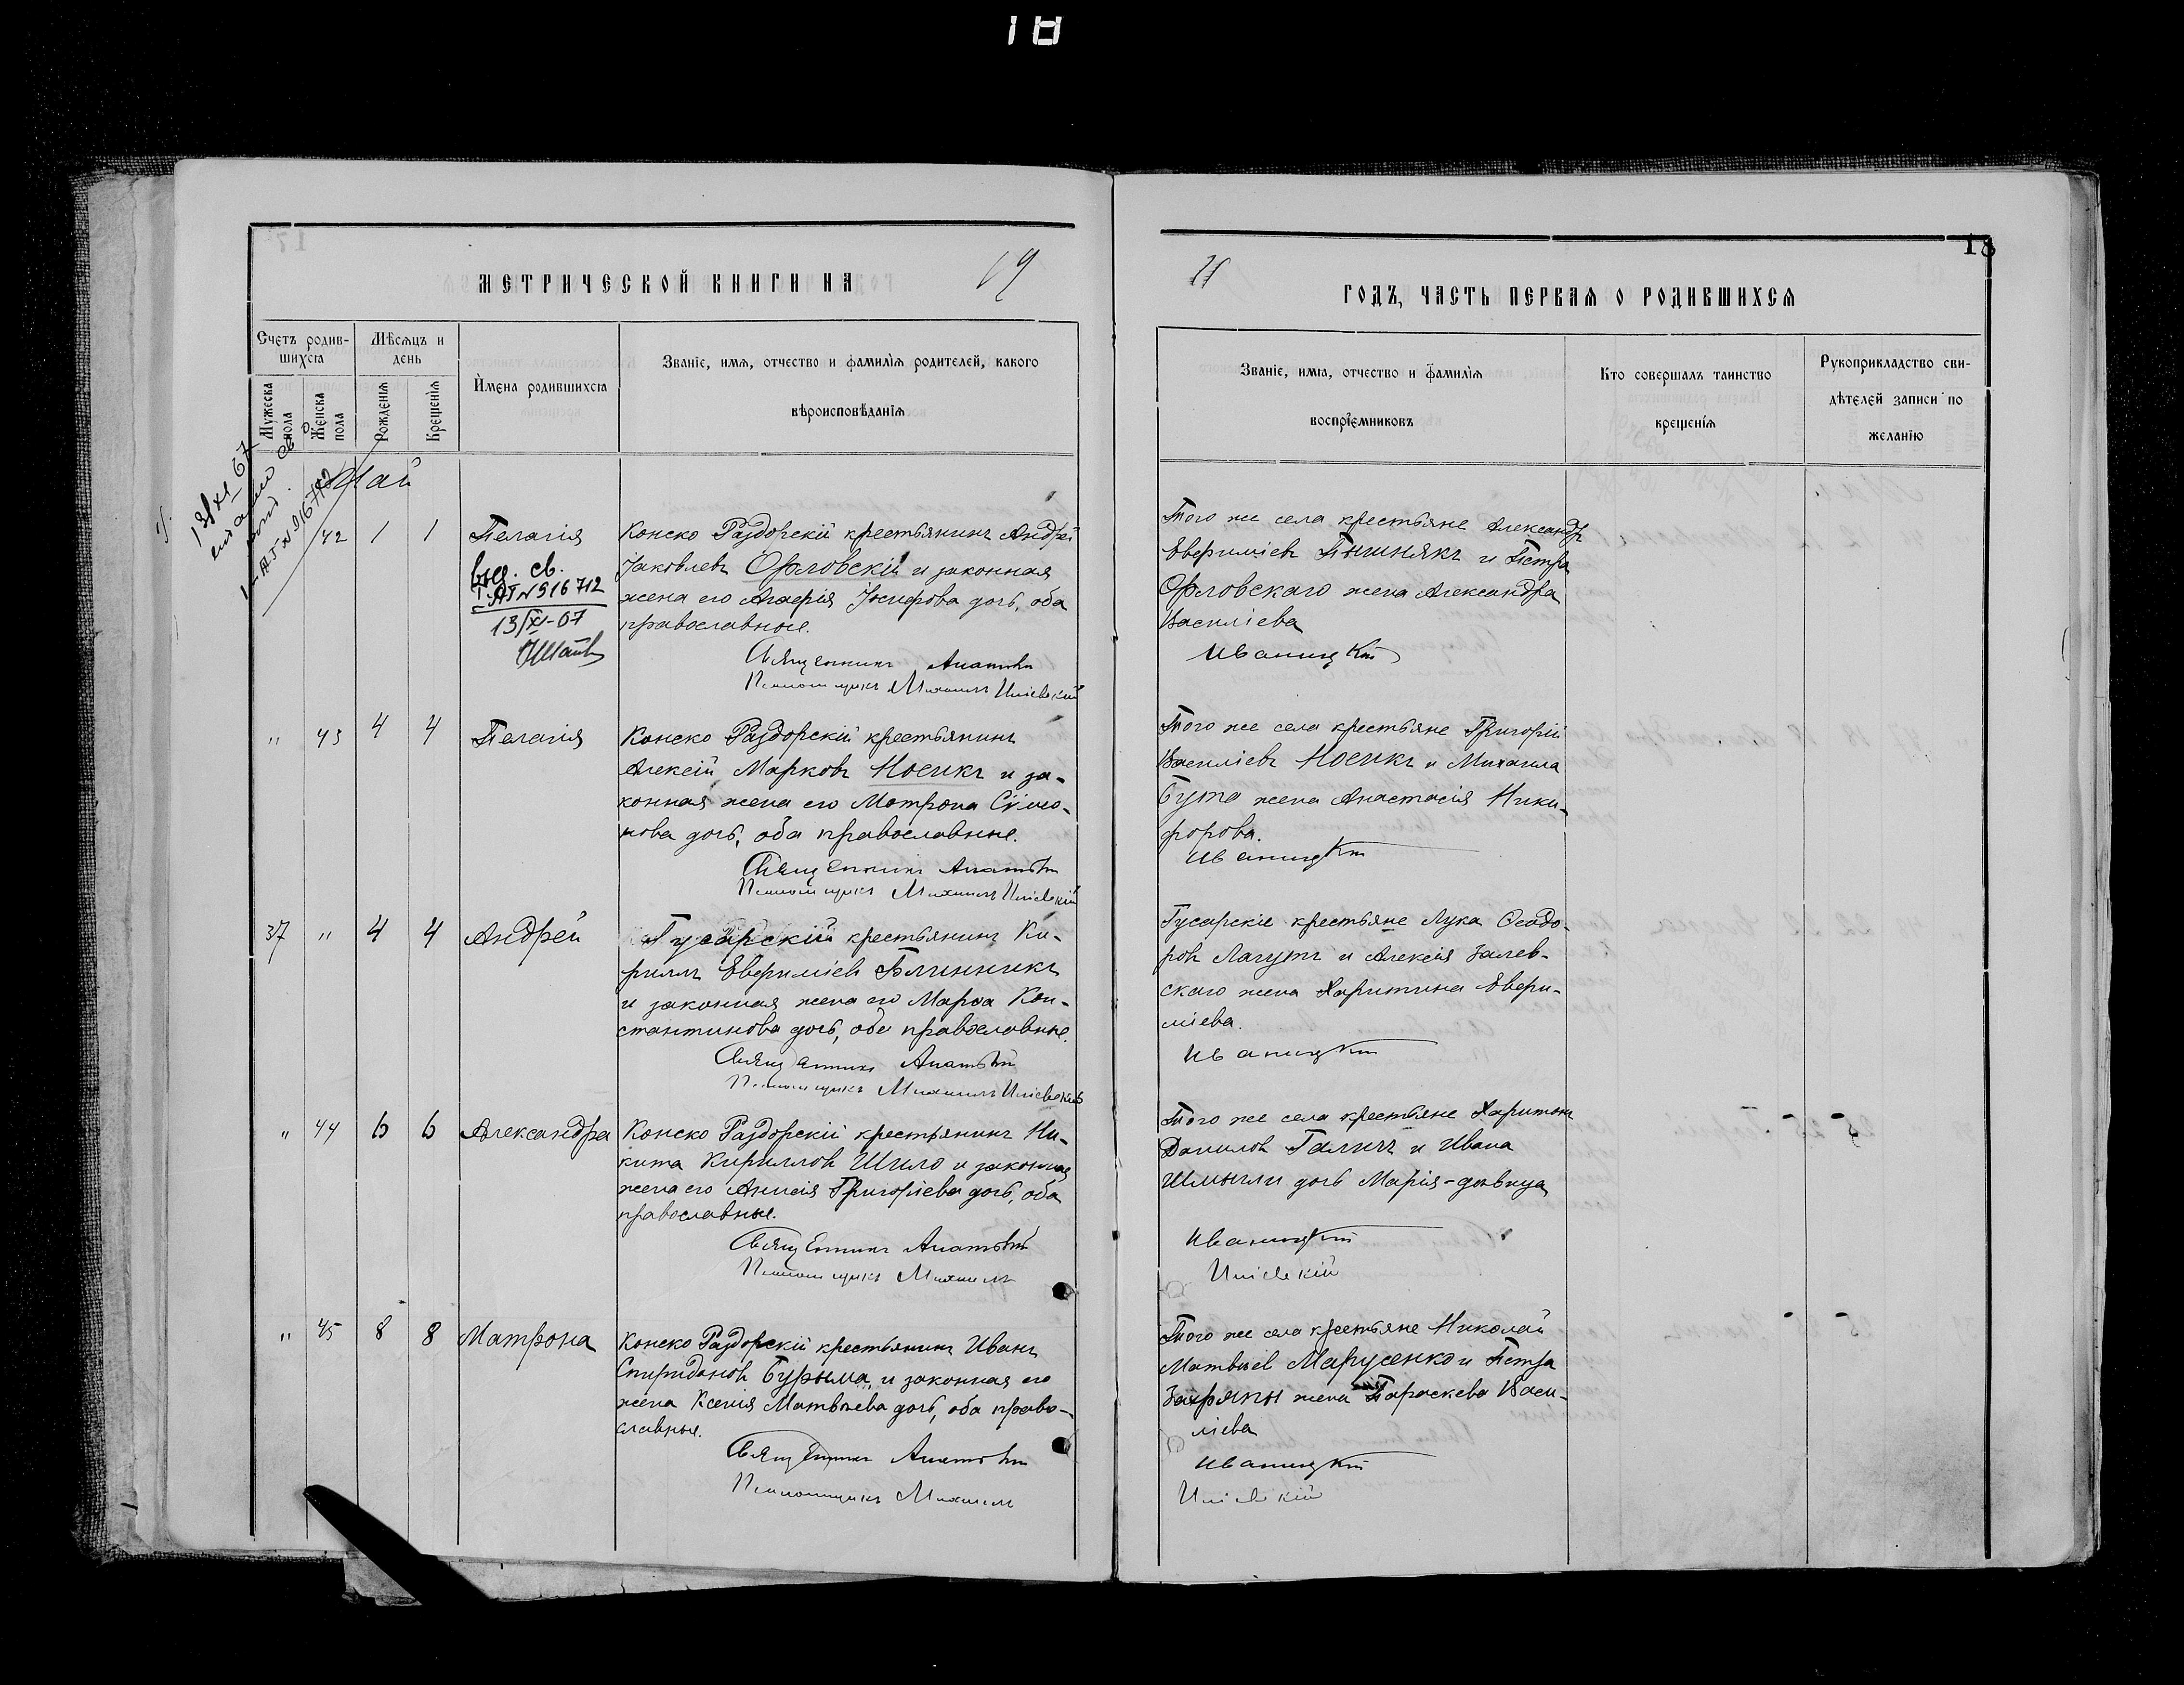 18
МЕТРИЧЕСКОЙ КНИГИ НА
19
Счетъ родив-
шихся
Мѣсяцъ и
день
Мужеска
пола
Женска
пола
Рожденія
Крещенія
Имена родившихся
Званіе, имя, отчество и фамилія родителей, какого
вѣроисповѣданія
13/XI 67
I-АП №516712
Май
42 1 1 Пелагія
выд. св.
I-АП №516712
13/XI-67
Конско Раздорскій крестьянинъ Андрей
Іаковлевъ Орловскій и законная
жена его Іосифова дочь, оба
православные.
Священникъ
Псаломщикъ Михаилъ
" 43 4 4 Пелагія
Конско Раздорскій крестьянинъ
Алексій Марковъ Носикъ и за-
конная жена его Матрона Сѵмео-
нова дочь, оба православные.
Священникъ
Псаломщикъ Михаилъ
37 " 4 4 Андрей
Гусарскій крестьянинъ Ки-
риллъ Евфиміевъ Блинникъ
и законная жена его Марѳа Кон-
стантинова дочь, оба православные.
Священникъ
Псаломщикъ Михаилъ
" 44 6 6 Александра
Конско Раздорскій крестьянинъ Ни-
кита Кирилловъ Шило и законная
жена его Анисія Григоріева дочь, оба
православные.
Священникъ
Псаломщикъ Михаилъ
" 45 8 8 Матрона
Конско Раздорскій крестьянинъ Иванъ
Спиридоновъ Бурыма и законная его
жена Ксенія Матвѣева дочь, оба право-
славные.
Священникъ
Псаломщикъ Михаилъ
18
ГОДЪ, ЧАСТЬ ПЕРВАЯ О РОДИВШИХСЯ
Званіе, имя, отчество и фамилія
воспріемниковъ
Кто совершалъ таинство
крещенія
Рукоприкладство сви-
дѣтелей записи по
желанію
Того же села крестьяне Александръ
Евфиміевъ Пышнякъ и Петра
Орловскаго жена Александра
Василіева
Иваницкій
Того же села крестьяне Григорій
Василіевъ Носикъ и Михаила
Бута жена Анастасія Ники-
форова.
Иваницкій
Гусарскіе крестьяне Лука Ѳеодо-
ровъ Лагутъ и Алексія Залев-
скаго жена Харитина Евфи-
міева.
Иваницкій
Того же села крестьяне Харитонъ
Даниловъ Галичъ и Ивана
Шмыгли дочь Марія-дѣвица
Иваницкій
Того же села крестьяне Николай
Матвѣевъ Марусенко и Петра
жена Параскева Васи-
ліева
Иваницкій